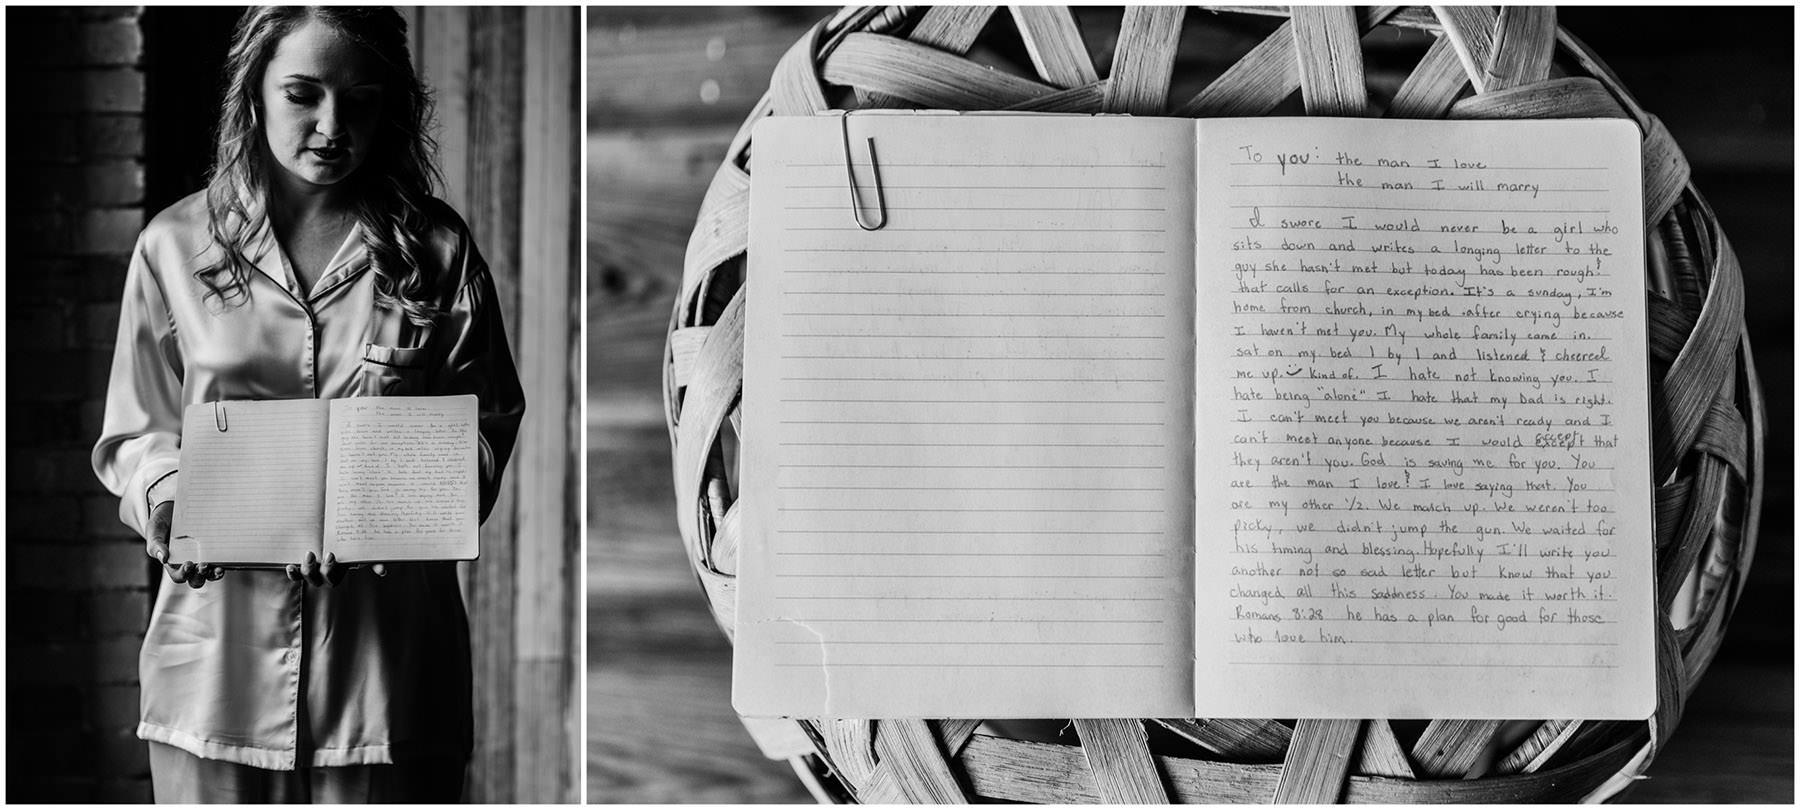 To you: the man I love
the man I will marry
I swore I would never be a girl who
sits down and writes a longing letter to the
guy she hasn't met but today has been rough &
that calls for an exception. It's a sunday, I'm
home from church, in my bed .after crying because
I haven't met you. My whole family came in.
sat on my bed 1 by 1 and listened & cheered
me up. kind of. I hate not knowing you. I
hate being "alone" I hate that my Dad is right.
I can't meet you because we aren't ready and I
can't meet anyone because I would except that
they aren't you. God is saving me for you. You
are the man I love! I love saying that. You
are my other 1/2. We match up. We weren't too
picky, we didn't jump the gun. We waited for
his timing and blessing. Hopefully I'll write you
another not so sad letter but know that you
changed all this saddness. You made it worth it.
Romans 8:28 he has a plan for good for those
who love him.